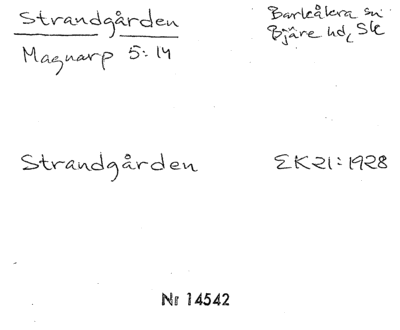 Strandgården
Barkåkra sn
Bjäre hd, Sk
Magnarp 5:14
Strandgården
EK21:1928
Nr 14542